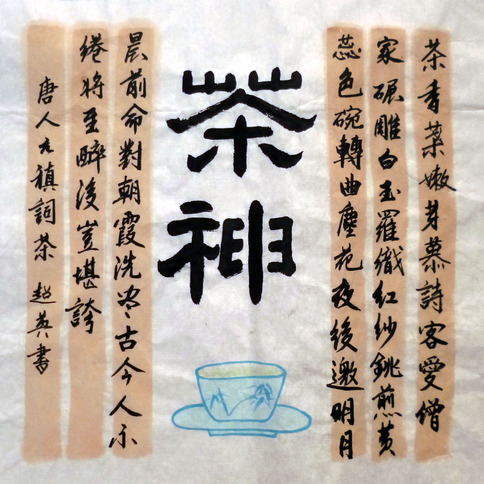 茶香葉嫩芽慕詩客愛僧
家碾雕白玉羅織紅紗銚煎黄
蕊色碗轉曲塵花夜後邀明月
茶神
晨前命對朝霞洗盡古今人不
綣將至醉後豈堪誇
唐人元稹詞茶 超英書